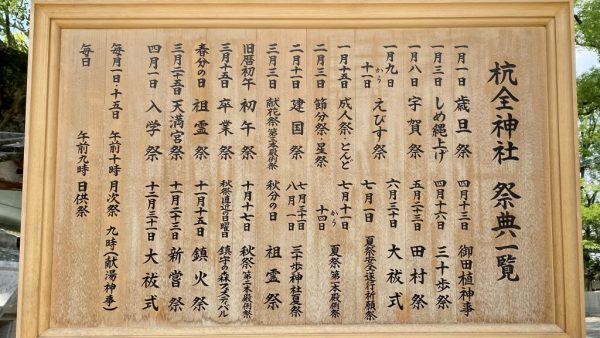 杭全神社 祭典一覧
一月一日 歳旦祭
一月三日 しめ縄上げ
一月八日 宇賀祭
一月九日
から
十一日 えびす祭
一月十五日 成人祭・とんど
二月三日 節分祭・星祭
二月十一日 建国祭
三月三日 献花祭(第三本殿例祭)
旧暦初午 初午祭
三月十五日 卒業祭
春分の日 祖霊祭
三月二十五日 天満宮祭
四月一日 入学祭
四月十三日 御田植神事
四月十六日 三十歩祭
五月二十三日 田村祭
六月三十日 大祓式
七月一日 夏祭安全運行祈願祭
七月十一日
から
十四日 夏祭(第一本殿例祭)
七月三十一日
八月一日 三十歩神社夏祭
秋分の日 祖霊祭
十月十七日 秋祭(第二本殿例祭)
秋祭直近の日曜日 鎮守の森フェスティバル
十一月十五日 鎮火祭
十一月二十三日 新嘗祭
十二月三十一日 大祓式
毎月一日・十五日 午前十時 月次祭 九時(献湯神事)
毎日 午前九時 日供祭